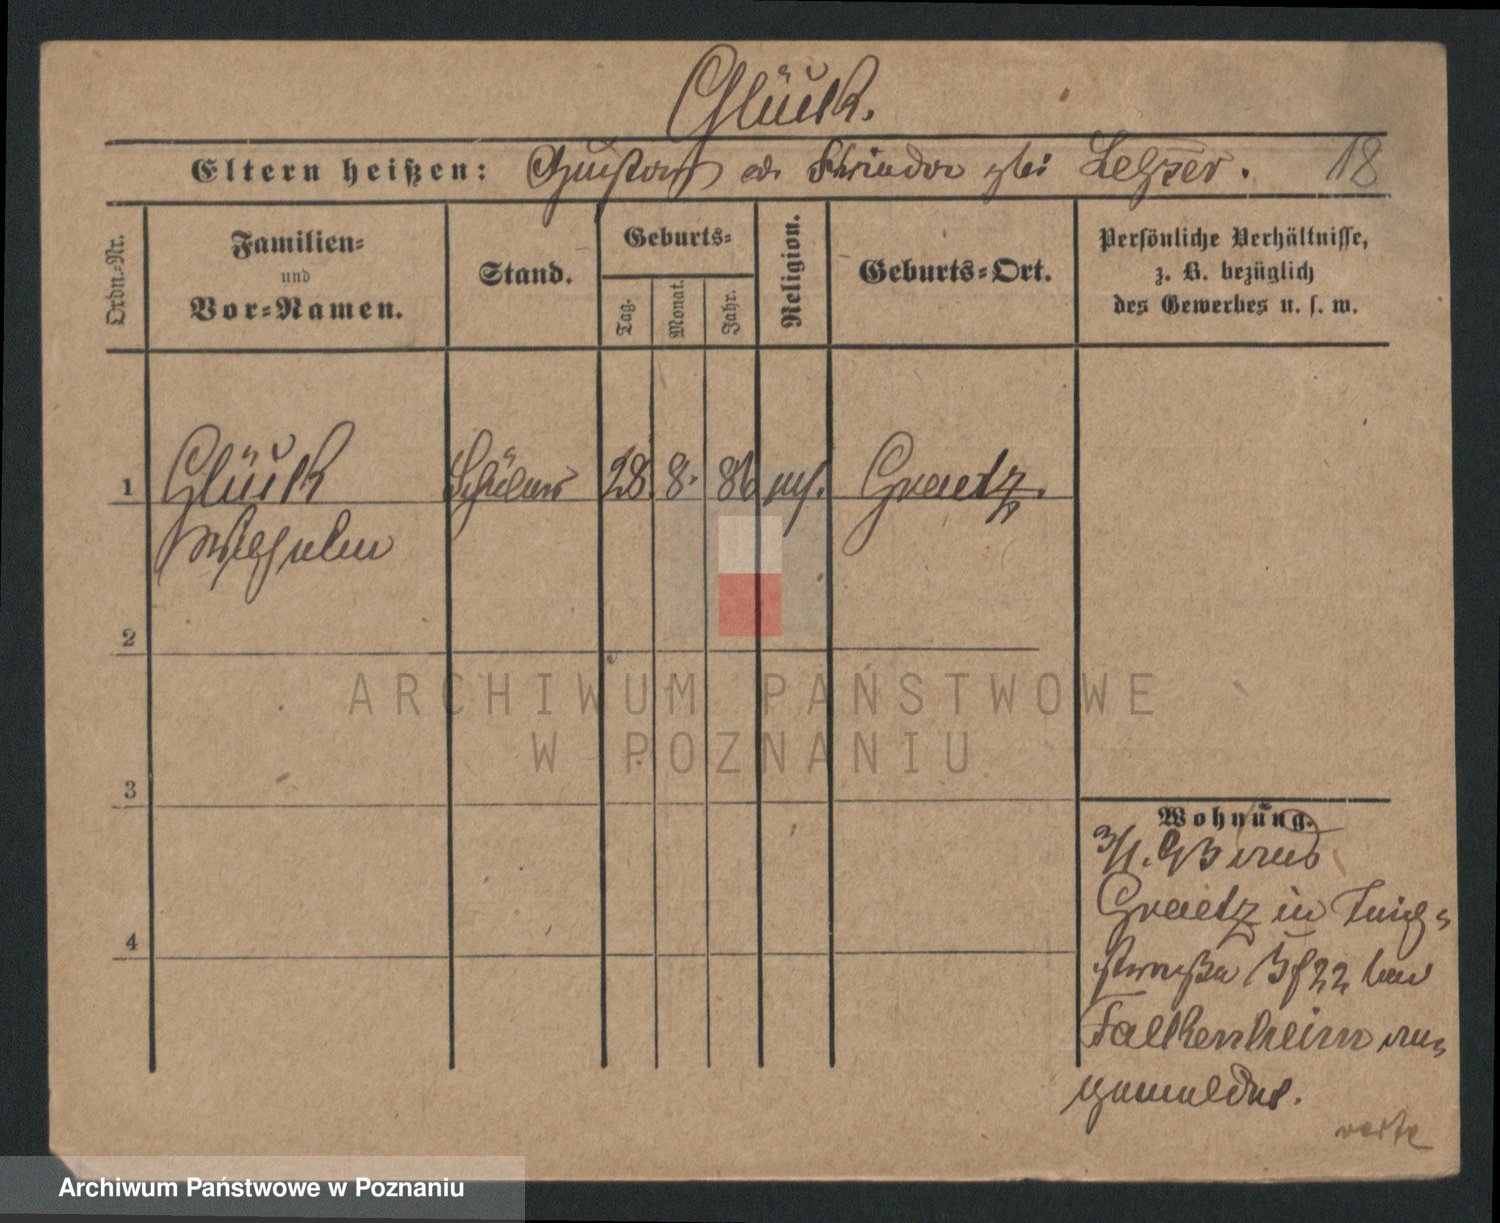 Glück.
Eltern heißen: Gustav & geb. Letzer. 18
Ordn.-Nr.
Familien-
und
Vor-Namen.
Stand.
Geburts-
Tag.
Monat.
Jahr.
Religion.
Geburts-Ort.
Persönliche Verhältnisse,
z. B. bezüglich
des Gewerbes u. s. w.
1 Glück Schüler 28. 8. 86 Graetz.
Wilhelm
2
ARCHIWUM PAŃSTWOWE
W POZNANIU
3
4
Wohnung.
3/1. 93 aus
Graetz in
straße 22 bei
Falkenheim an-
gemeldet.
verte
Archiwum Państwowe w Poznaniu